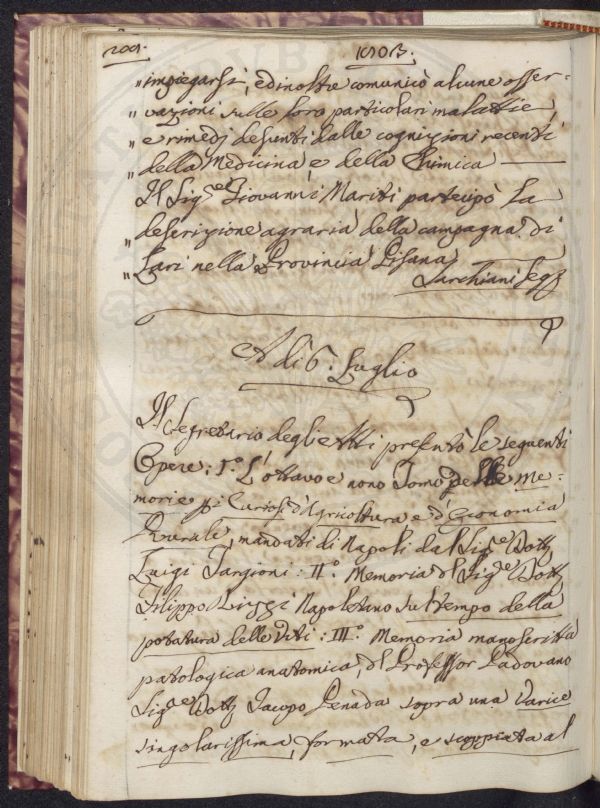 200.
1803.
" impiegarsi, ed inoltre comunicò alcune osser-
" vazioni sulle loro particolari malattie,
" e rimedj desunti dalle cognizioni recenti
" della Medicina e della Chimica
Il Sig.e Giovanni Mariti partecipò la
" descrizione agraria della campagna di
" Lari nella Provincia Pisana
Sarchiani Seg.
A dì 6. Luglio
Il Segretario degli Atti presentò le seguenti
Opere: I.° L'ottavo e nono Tomo delle Me-
morie p i Curiosi d'Agricoltura e d'Economia
Rurale, mandati di Napoli dal Sig.e Dott.
Luigi Targioni: II.° Memoria del Sig.e Dott.
Filippo Rizzi Napoletano sul tempo della
potatura delle Viti: III.° Memoria manoscritta
patologica anatomica, del Professor Padovano
Sig.e Dott. Jacopo Penada sopra una Varice
singolarissima, formata, e scoppiata al